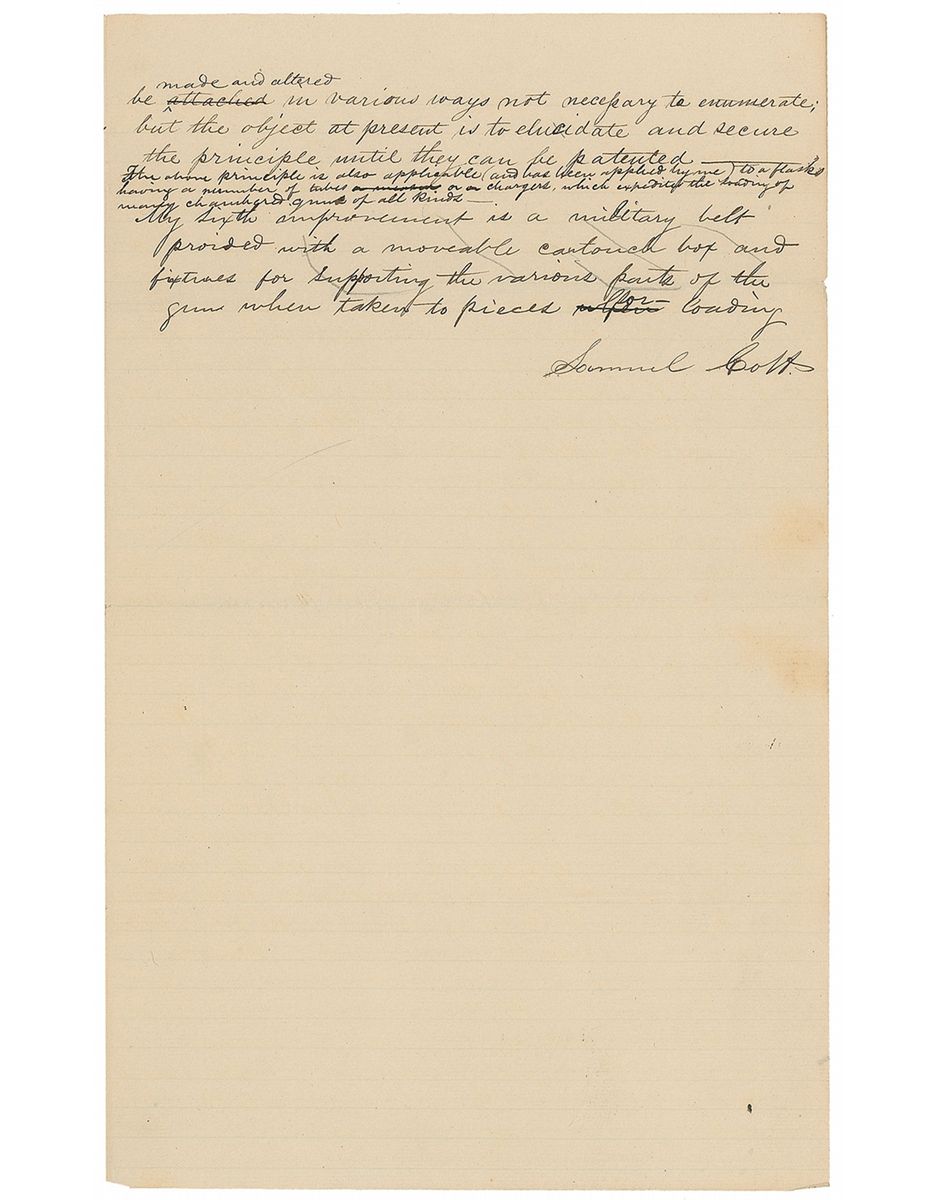 made and altered
be attached in various ways not necessary to enumerate;
but the object at present is to elucidate and secure
the principle until they can be patented
The above principle is also applicable (and has been applied by me) to a flasks
having a number of tubes or a chargers, which expedites the loading of
many chambered guns of all kinds —
My sixth improvement is a military belt
proided with a moveable cartouch box and
fixtures for supporting the various parts of the
gun when taken to pieces for loading
Samuel Colt.